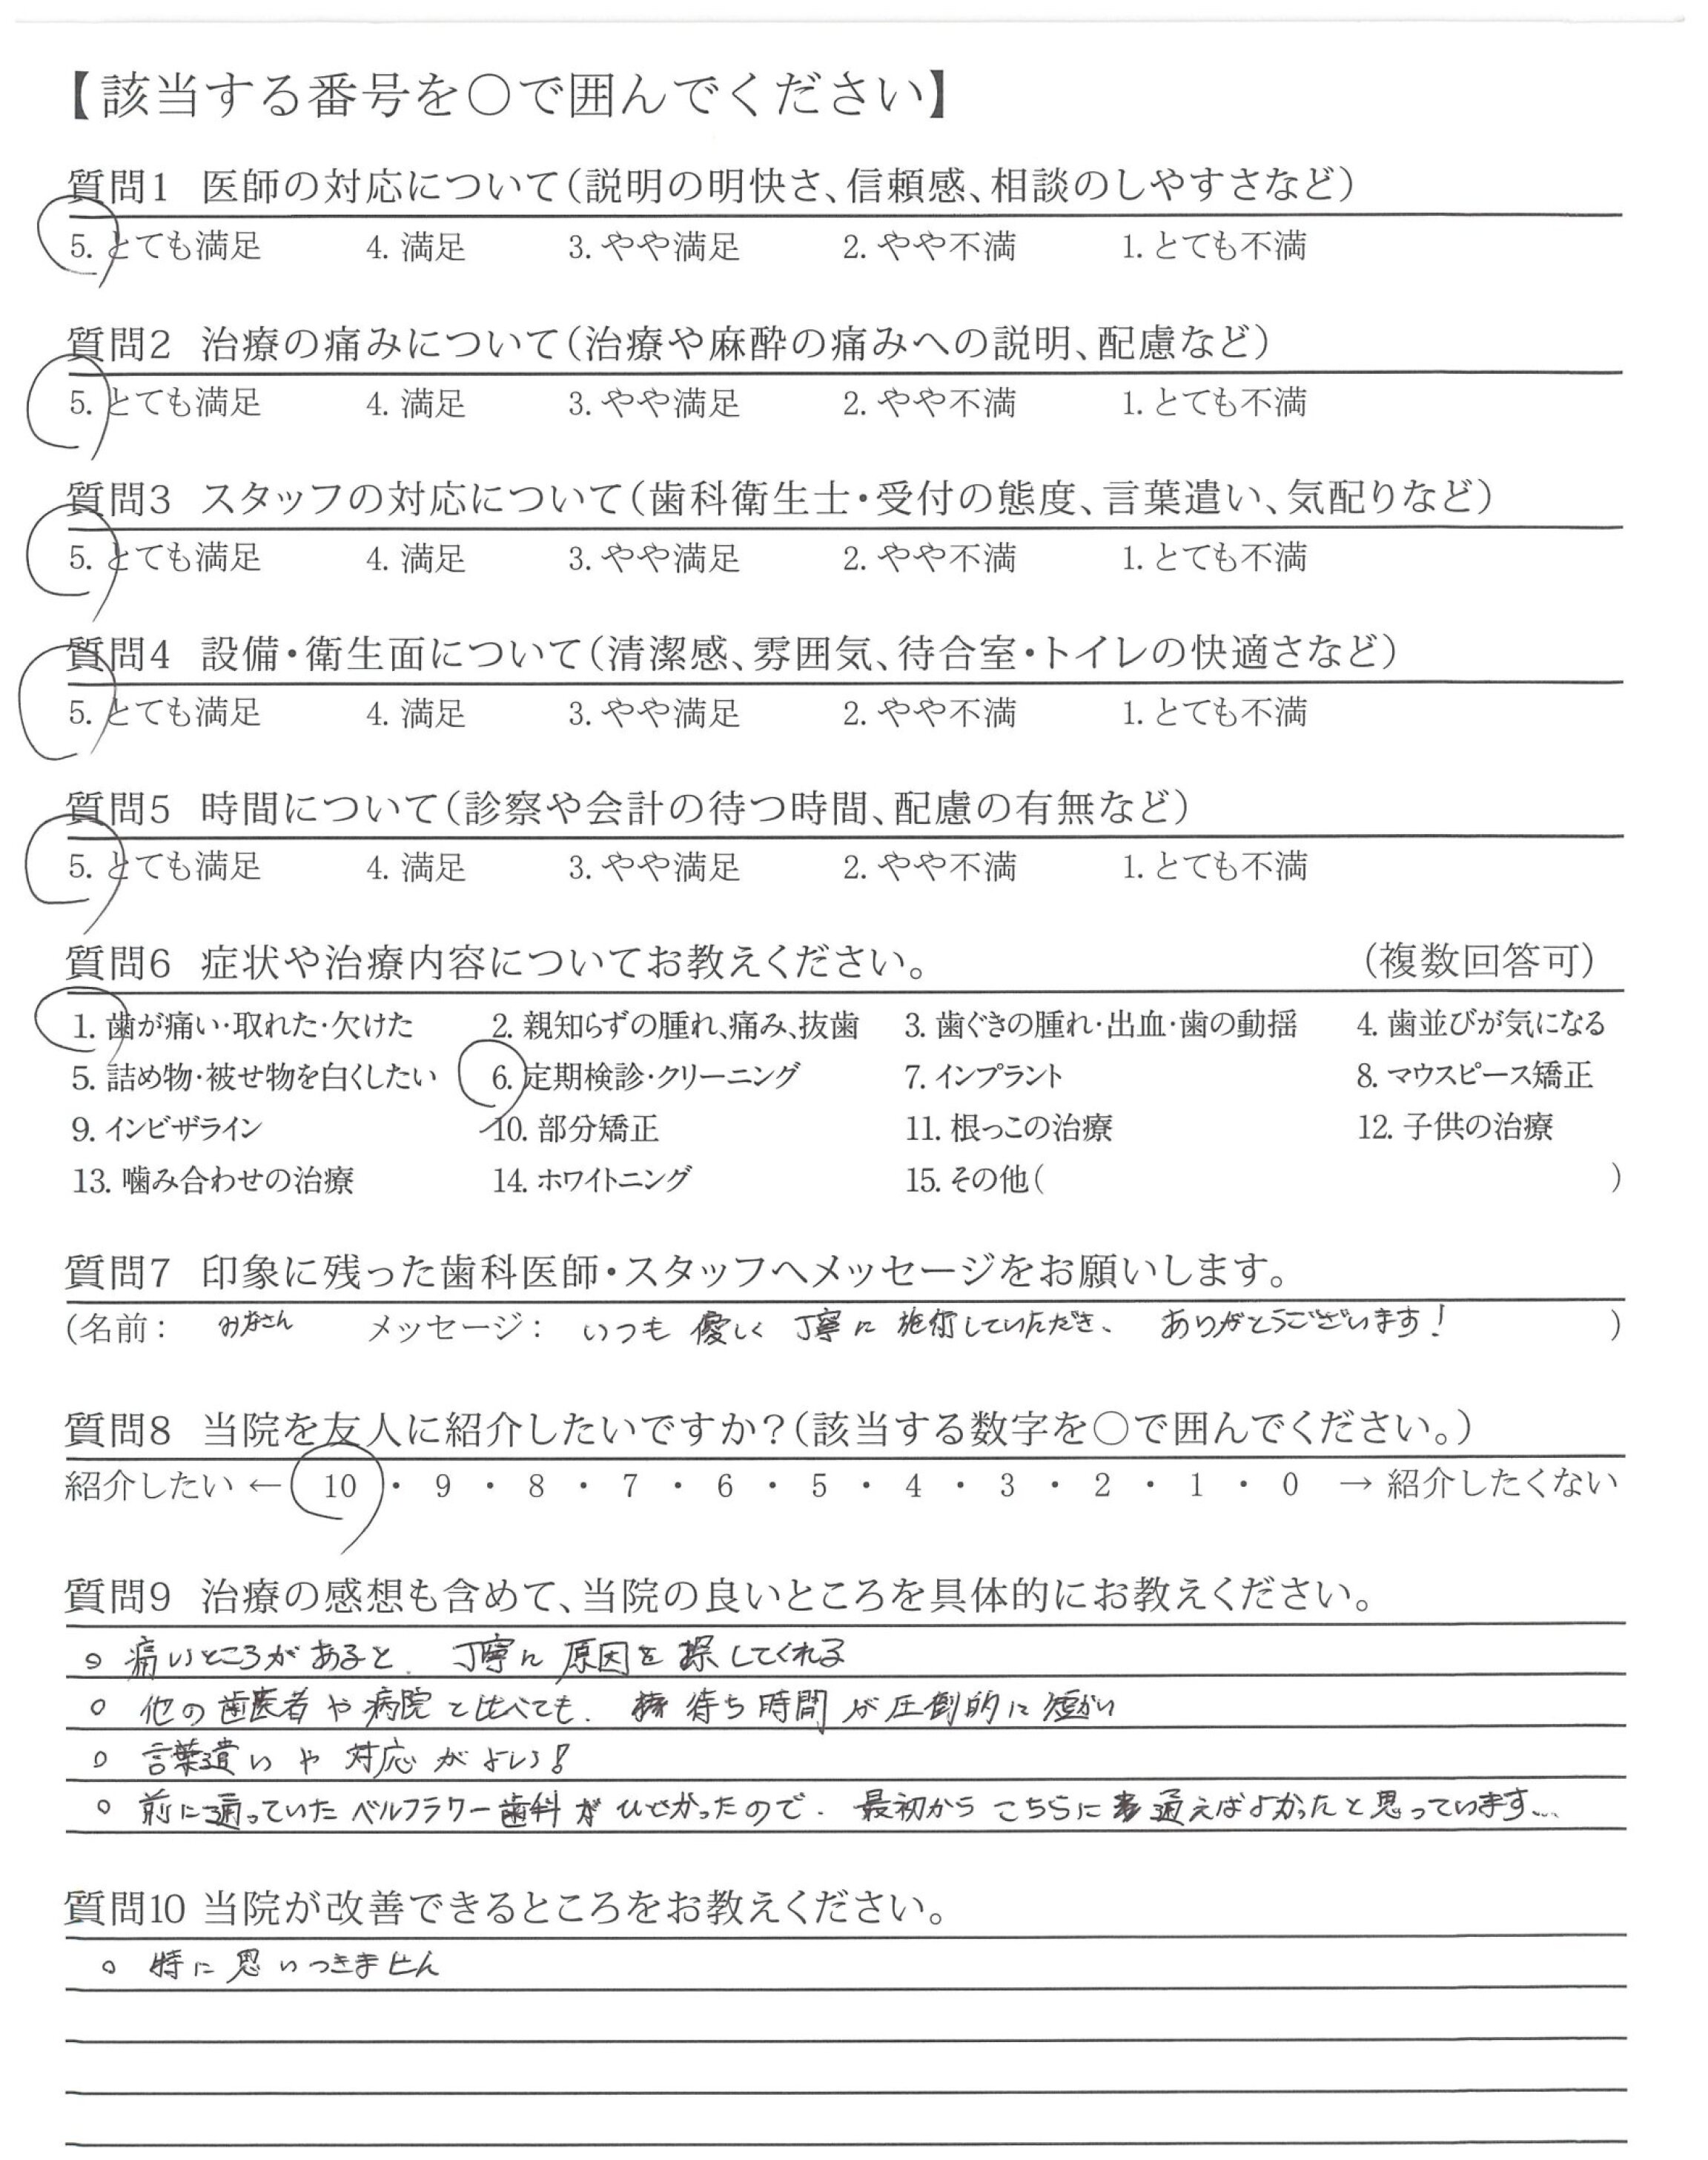 【該当する番号を○で囲んでください】
質問1 医師の対応について(説明の明快さ、信頼感、相談のしやすさなど)
5. とても満足 4. 満足 3. やや満足 2. やや不満 1. とても不満
質問2 治療の痛みについて(治療や麻酔の痛みへの説明、配慮など)
5. とても満足 4. 満足 3. やや満足 2. やや不満 1. とても不満
質問3 スタッフの対応について(歯科衛生士・受付の態度、言葉遣い、気配りなど)
5. とても満足 4. 満足 3. やや満足 2. やや不満 1. とても不満
質問4 設備・衛生面について(清潔感、雰囲気、待合室・トイレの快適さなど)
5. とても満足 4. 満足 3. やや満足 2. やや不満 1. とても不満
質問5 時間について(診察や会計の待つ時間、配慮の有無など)
5. とても満足 4. 満足 3. やや満足 2. やや不満 1. とても不満
質問6 症状や治療内容についてお教えください。 (複数回答可)
1. 歯が痛い・取れた・欠けた 2. 親知らずの腫れ、痛み、抜歯 3. 歯ぐきの腫れ・出血・歯の動揺 4. 歯並びが気になる
5. 詰め物・被せ物を白くしたい 6. 定期検診・クリーニング 7. インプラント 8. マウスピース矯正
9. インビザライン 10. 部分矯正 11. 根っこの治療 12. 子供の治療
13. 噛み合わせの治療 14. ホワイトニング 15. その他( )
質問7 印象に残った歯科医師・スタッフへメッセージをお願いします。
(名前: みなさん メッセージ: いつも優しく丁寧に施術していただき、ありがとうございます! )
質問8 当院を友人に紹介したいですか?(該当する数字を○で囲んでください。)
紹介したい ← 10 ・ 9 ・ 8 ・ 7 ・ 6 ・ 5 ・ 4 ・ 3 ・ 2 ・ 1 ・ 0 → 紹介したくない
質問9 治療の感想も含めて、当院の良いところを具体的にお教えください。
○ 痛いところがあると、丁寧に原因を探してくれる
○ 他の歯医者や病院と比べても、待ち時間が圧倒的に短かい
○ 言葉遣いや対応がよい!
○ 前に通っていたベルフラワー歯科がひどかったので、最初からこちらに通えばよかったと思っています…
質問10 当院が改善できるところをお教えください。
○ 特に思いつきません